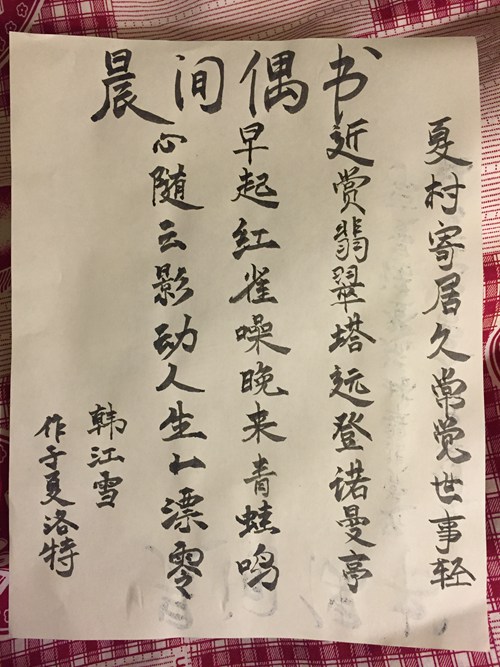 晨间偶书
夏村寄居久常觉世事轻
近赏翡翠塔远登诺曼亭
早起红雀噪晚来青蛙鸣
心随云影动人生漂零
韩江雪
作于夏洛特